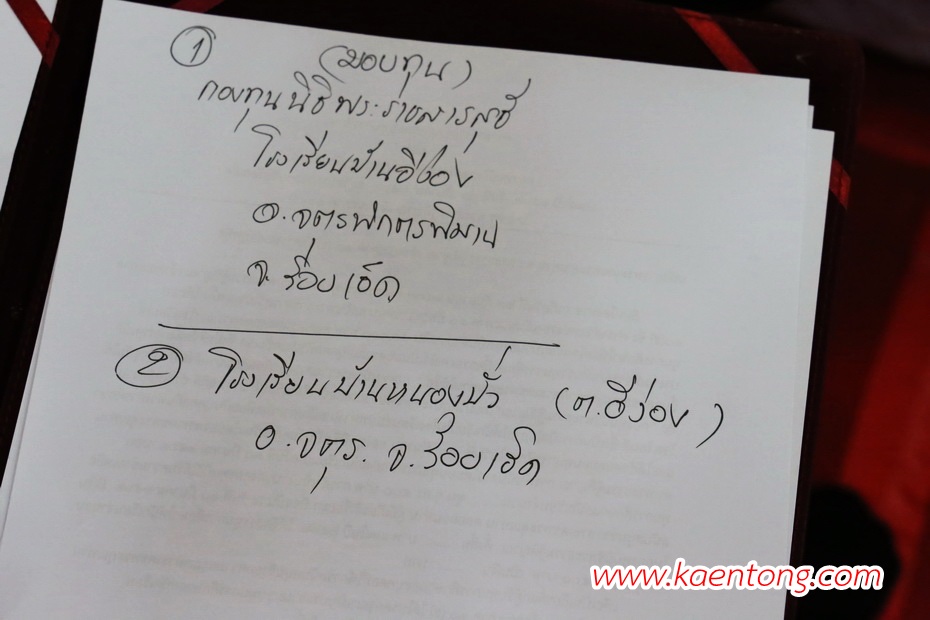 ① (มอบทุน)
กองทุนนิธิพระราชสารสุชี
โรงเรียนบ้านอีง่อง
อ.จตุรพักตรพิมาน
จ.ร้อยเอ็ด
② โรงเรียนบ้านหนองบั่ว (ต.อีง่อง)
อ.จตุร. จ.ร้อยเอ็ด
www.kaentong.com